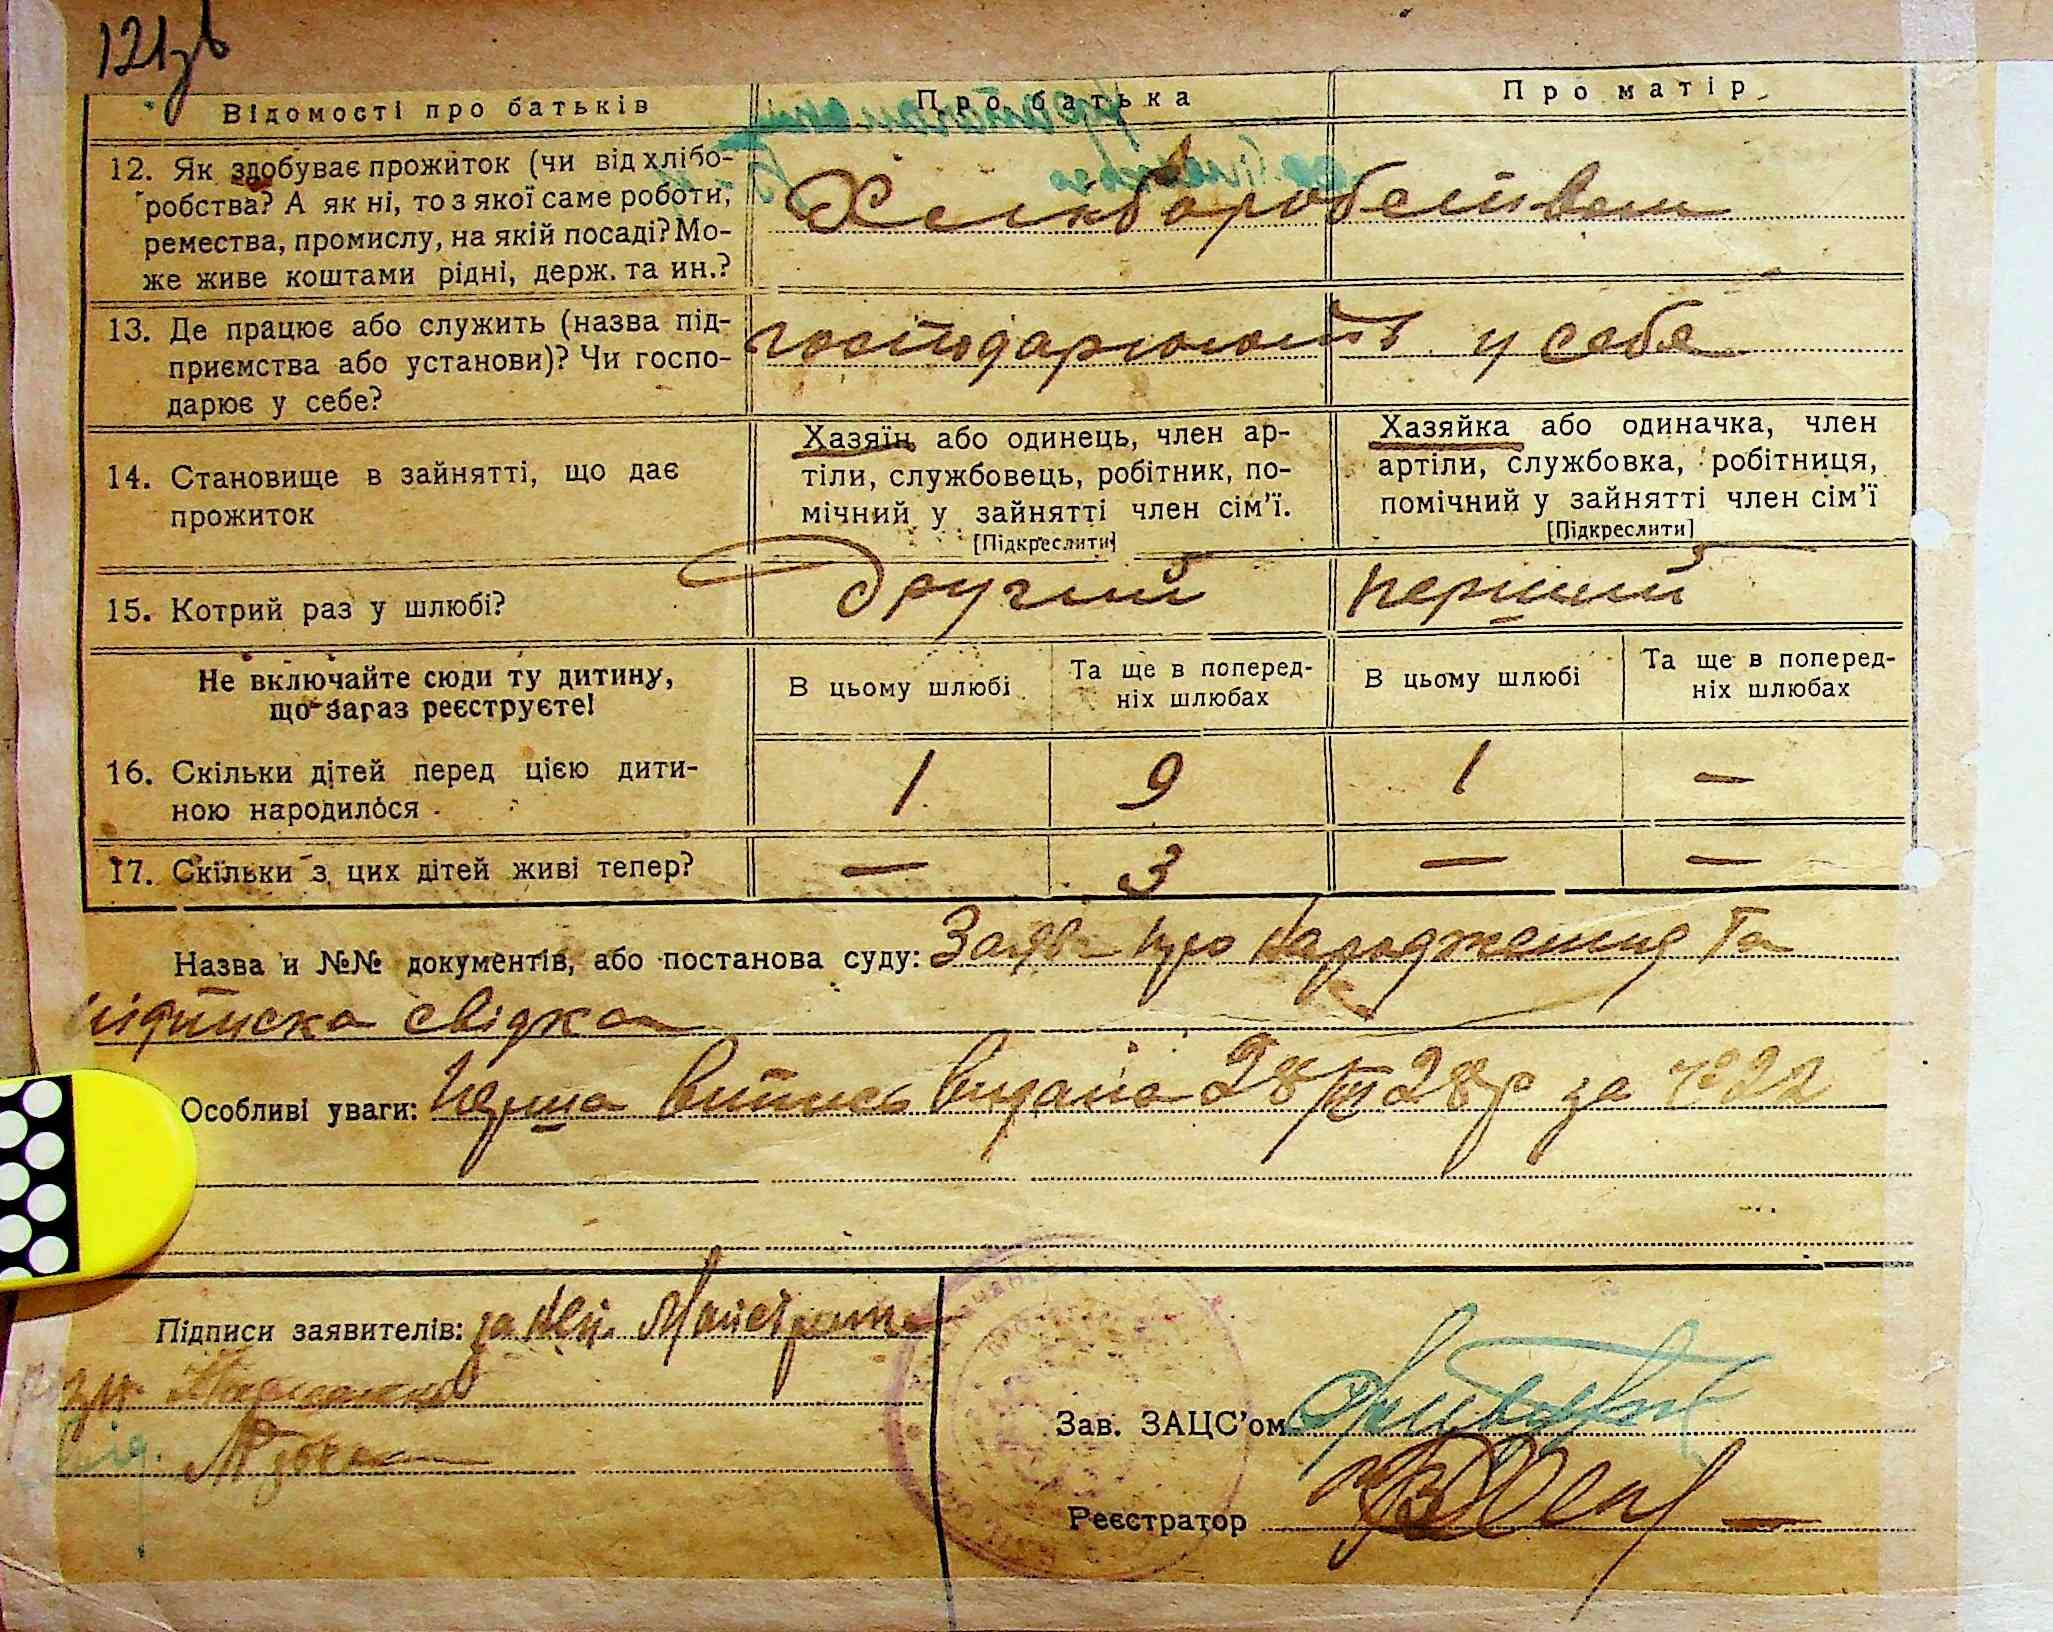 121зв
Відомості про батьків
Про батька
Про матір
12. Як здобуває прожиток (чи від хлібо-
робства? А як ні, то з якої саме роботи,
ремества, промислу, на якій посаді? Мо-
же живе коштами рідні, держ. та ин.?
Хлиборобством
13. Де працює або служить (назва під-
приємства або установи)? Чи госпо-
дарює у себе?
господарюють у себе
14. Становище в зайнятті, що дає
прожиток
Хазяїн або одинець, член ар-
тіли, службовець, робітник, по-
мічний у зайнятті член сім'ї.
[Підкреслити]
Хазяйка або одиначка, член
артіли, службовка, робітниця,
помічний у зайнятті член сім'ї
[Підкреслити]
15. Котрий раз у шлюбі?
Другий
перший
Не включайте сюди ту дитину,
що загаз реєструєте!
В цьому шлюбі
Та ще в поперед-
ніх шлюбах
В цьому шлюбі
Та ще в поперед-
ніх шлюбах
16. Скільки дітей перед цією дити-
ною народилося
1
9
1
—
17. Скільки з цих дітей живі тепер?
—
3
—
—
Назва и №№ документів, або постанова суду: Заява про народження та
підписка свідка
Особливі уваги: Перша випись видана 28/III 28 р за № 22
Підписи заявителів: за неп.
Зав. ЗАЦС'ом
Реєстратор